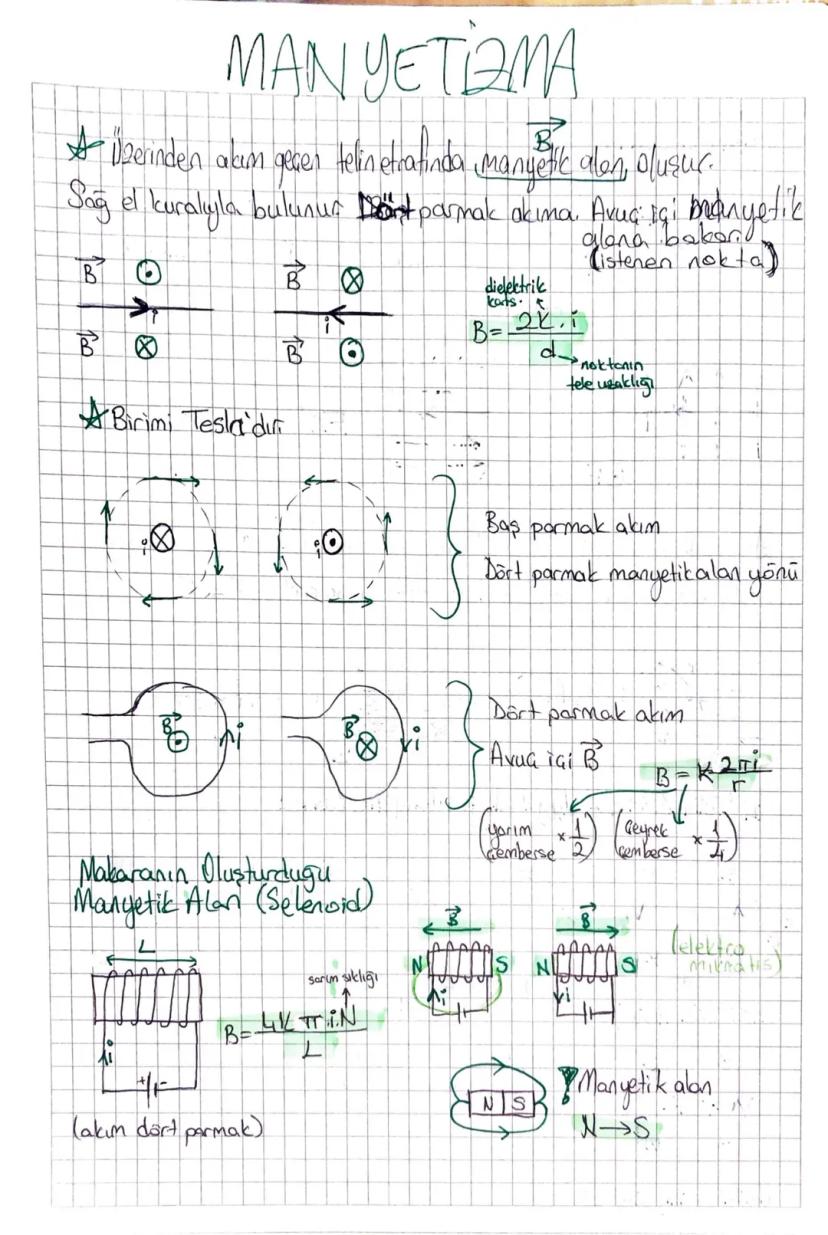 MANYETİZMA
B
☆ Üzerinden akım geçen telin etrafında manyetik alan oluşur.
Sağ el kuralıyla bulunur Dört parmak akıma Avuç içi manyetik
alana bakar
(istenen nokta)
B ⊙ B ⊗
i i
B ⊗ B ⊙
dielektrik
kats.
B = 2k.i / d
noktanın
tele uzaklığı
☆ Birimi Tesla'dır
i ⊗ i ⊙
Baş parmak akım
Dört parmak manyetik alan yönü
B ⊙ i B ⊗ i
Dört parmak akım
Avuç içi B
B = k 2πi / r
(yarım çemberse x 1/2) (çeyrek çemberse x 1/4)
Makaranın Oluşturduğu
Manyetik Alan (Selenoid)
L
i
+ -
sarım sıklığı
B = 4kπ.i.N / L
(akım dört parmak)
B B
N S N S
i i
(elektro
mıknatıs)
N S
! Manyetik alan
N → S